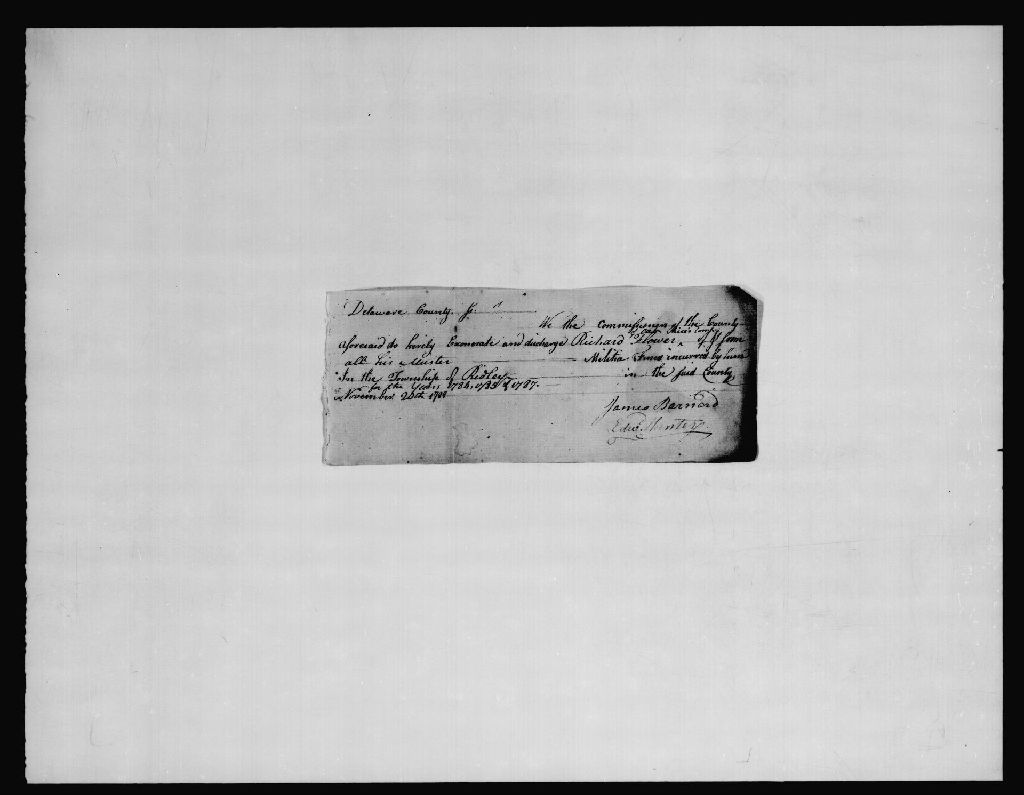 Delaware County Ss
We the commissioners of the County
aforesaid do hereby Exonerate and discharge Richard Flower of & from
all his Muster Militia Fines incurred by him
In the Township of Ridley in the said County
for the Years 1784, 1785 & 1787.
November 24th 1788
James Barnard
Edw. Hunter